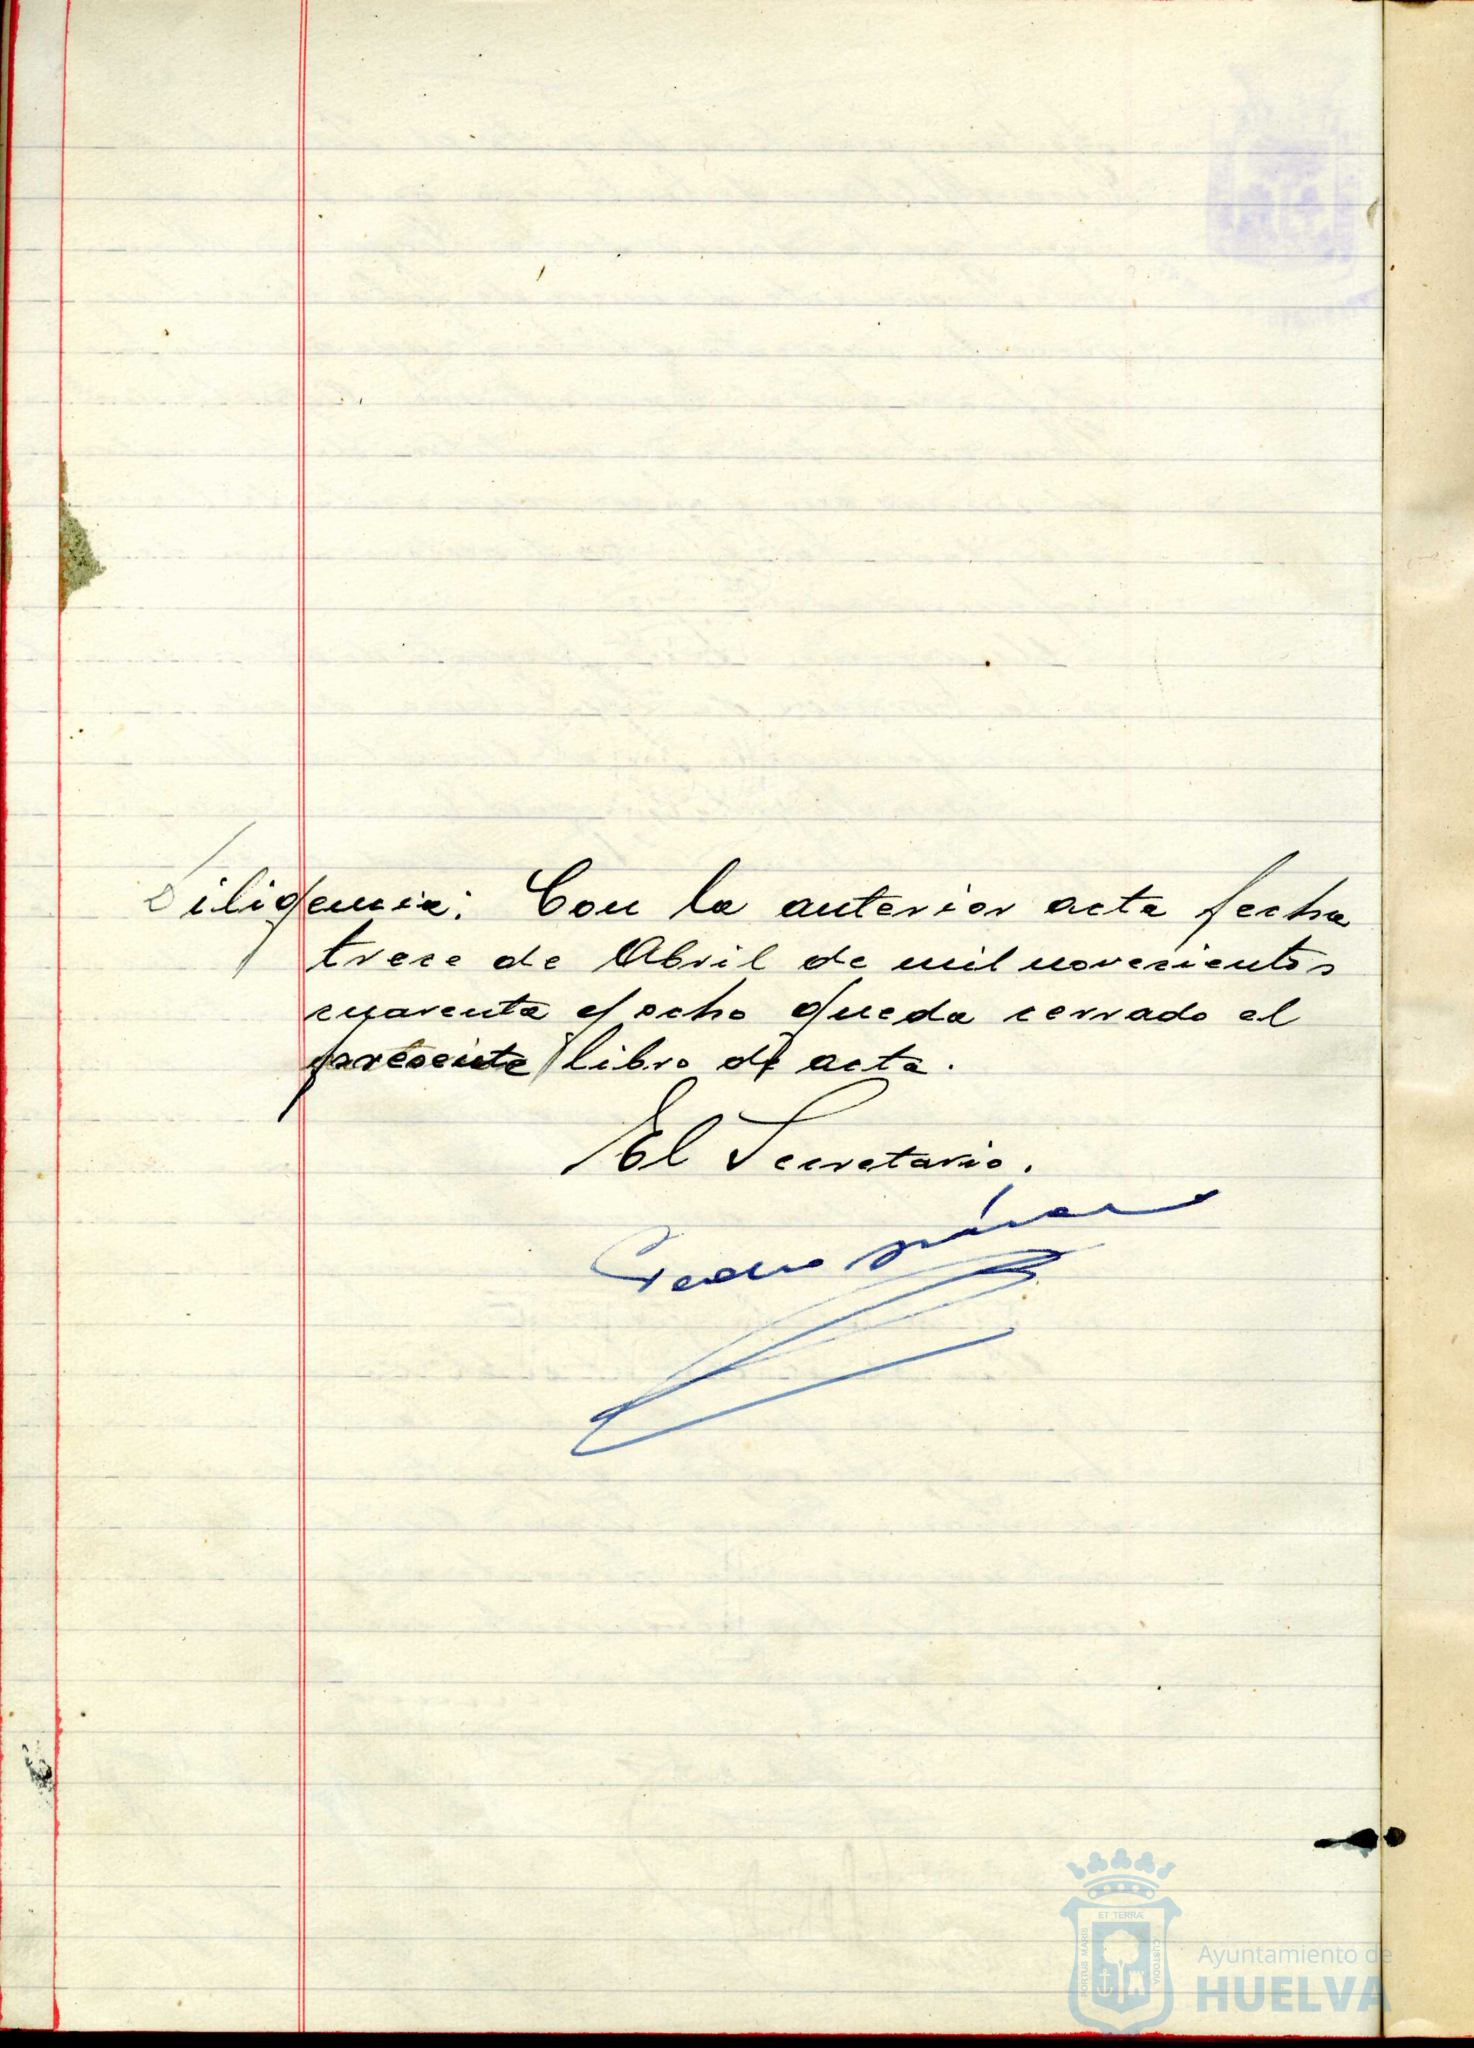 Diligencia: Con la anterior acta fecha
trece de Abril de mil novecientos
cuarenta y ocho queda cerrado el
presente libro de acta.
El Secretario.
Pedro
ET TERRÆ
PORTUS MARIS
CUSTODIA
Ayuntamiento de
HUELVA